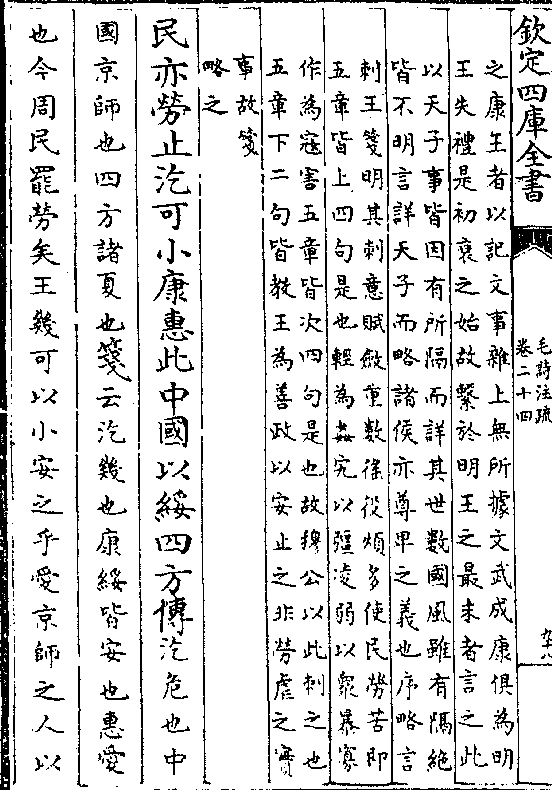 欽定四庫全書
毛詩注疏
卷二十四
之康王者以記文事雜上無所據文武成康俱為明
王失禮是初衰之始故繫於明王之最末者言之此
以天子事皆因有所隔而詳其世數國風雖有隔絶
皆不明言詳天子而略諸侯亦尊卑之義也序略言
刺王箋明其刺意賦斂重數徭役煩多使民勞苦即
五章皆上四句是也輕為姦宄以彊凌弱以衆暴寡
作為寇害五章皆次四句是也故穆公以此刺之也
五章下二句皆教王為善政以安止之非勞虐之實
事故箋
略之
民亦勞止汔可小康惠此中國以綏四方傳汔危也中
國京師也四方諸夏也箋云汔幾也康綏皆安也惠愛
也今周民罷勞矣王幾可以小安之乎愛京師之人以